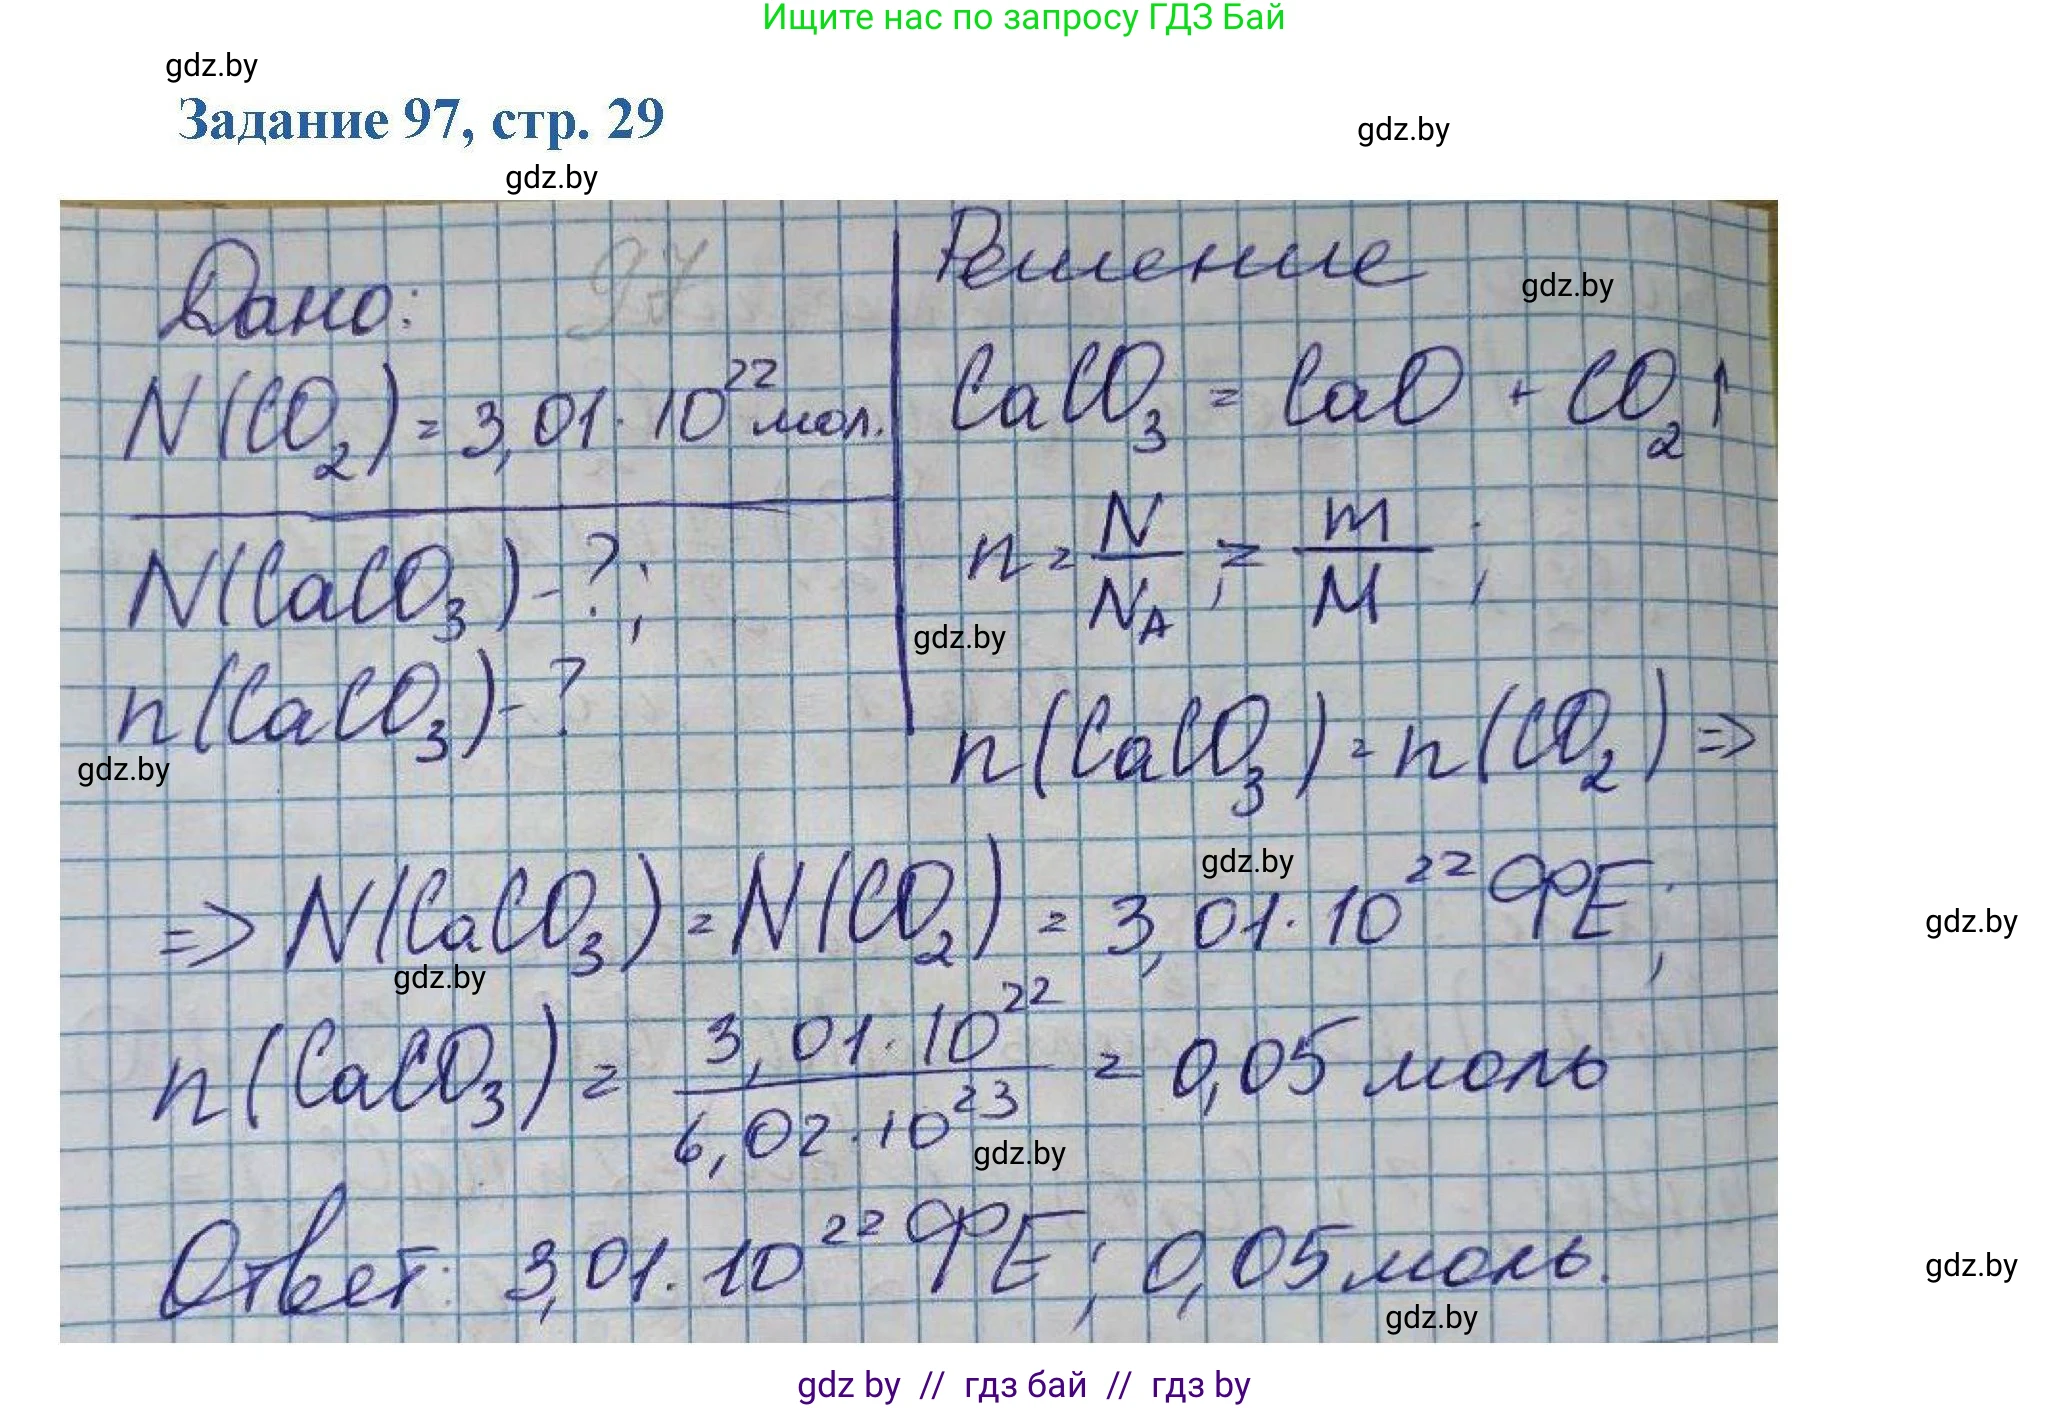 Ищите нас по запросу ГДЗ Бай
gdz.by
Задание 97, стр. 29
gdz.by
gdz.by
Дано:
97
N(CO₂) = 3,01·10²² мол.
N(CaCO₃) - ?;
n(CaCO₃) - ?
gdz.by
Решение
gdz.by
CaCO₃ = CaO + CO₂↑
n = N/N_A; = m/M;
gdz.by
n(CaCO₃) = n(CO₂) =>
gdz.by
=> N(CaCO₃) = N(CO₂) = 3,01·10²² ФЕ;
gdz.by
gdz.by
n(CaCO₃) = 3,01·10²² / 6,02·10²³ = 0,05 моль
gdz.by
Ответ: 3,01·10²² ФЕ; 0,05 моль.
gdz.by
gdz.by
gdz by // гдз бай // гдз by